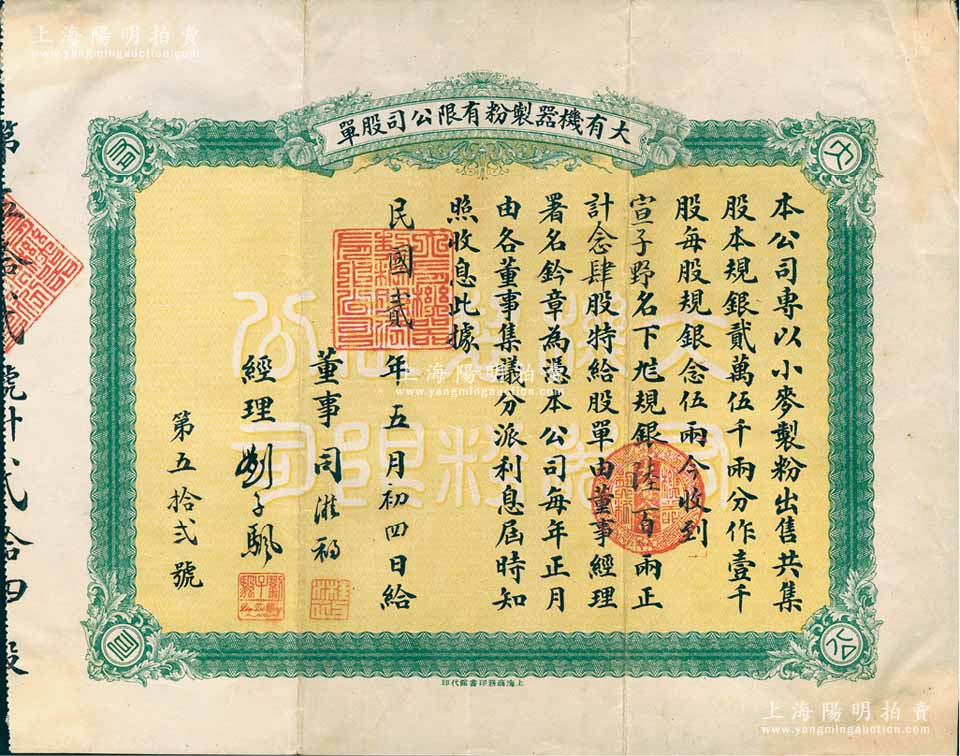 上海陽明拍賣
www.yangmingauction.com
大有機器製粉有限公司股單
本公司專以小麥製粉出售共集
股本規銀貳萬伍千兩分作壹千
股每股規銀念伍兩今收到
宣子野名下規銀陸百兩正
計念肆股特給股單由董事經理
署名鈐章為憑本公司每年正月
由各董事集議分派利息屆時知
照收息此據
民國貳年五月初四日給
董事
經理劉子颿
第五拾弍號
號計弍拾四股
上海商務印書館代印
上海陽明拍賣
www.yangmingauction.com
上海陽明拍賣
www.yangmingauction.com